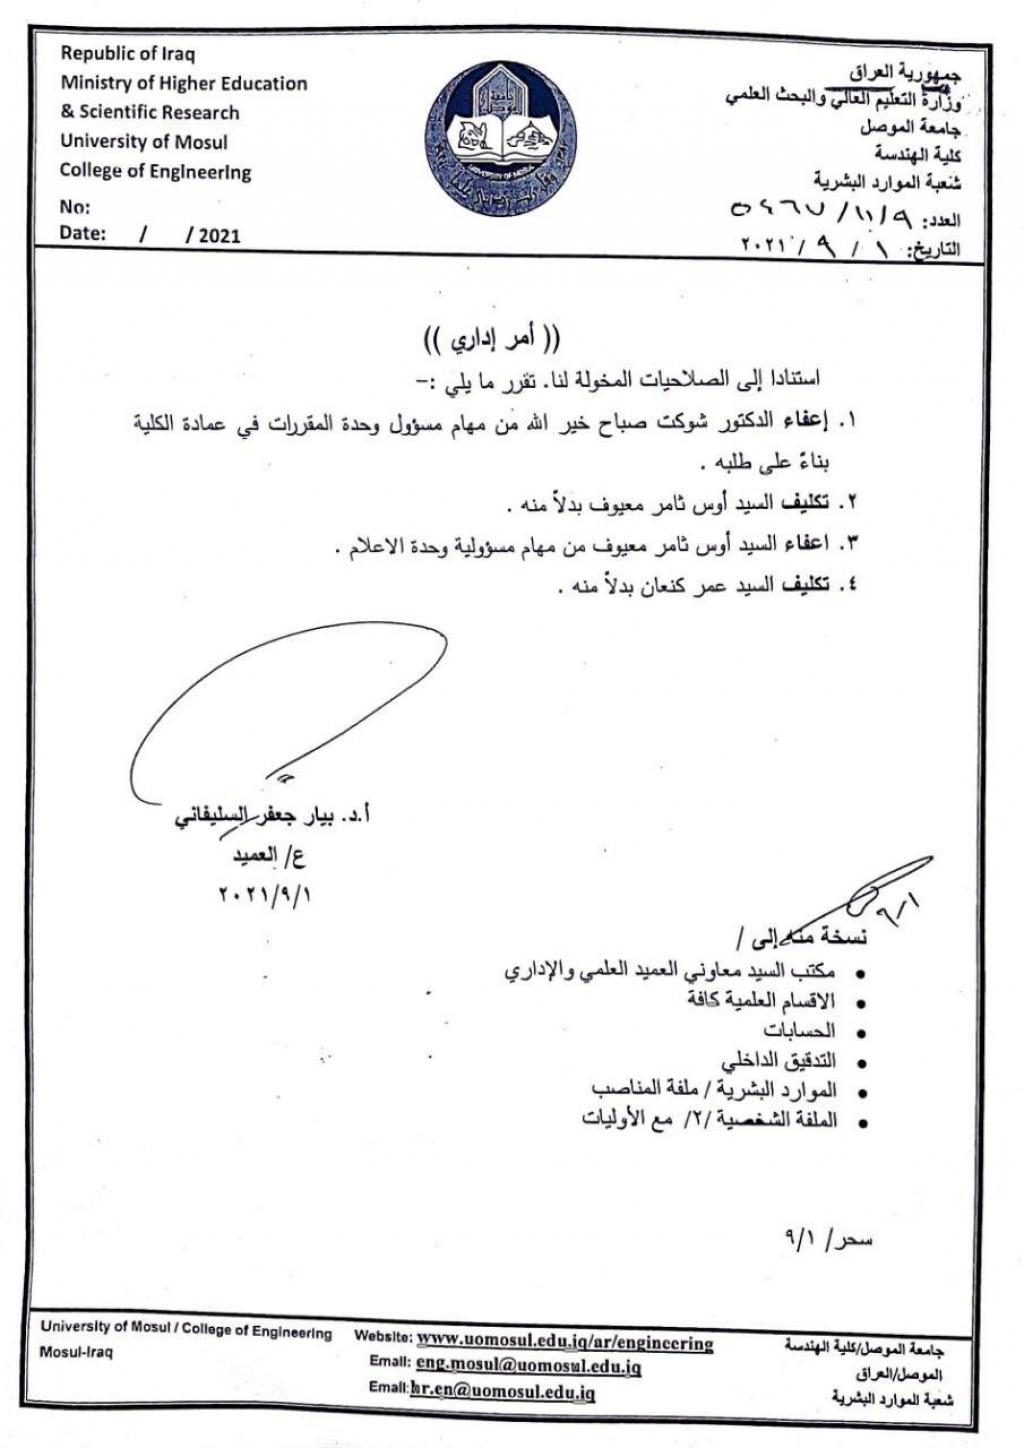 Republic of Iraq
Ministry of Higher Education
& Scientific Research
University of Mosul
College of Engineering
No:
Date: / / 2021
جمهورية العراق
وزارة التعليم العالي والبحث العلمي
جامعة الموصل
كلية الهندسة
شعبة الموارد البشرية
العدد: ٩/١١/٥٤٦٧
التاريخ: ١ / ٩ / ٢٠٢١
UNIVERSITY OF MOSUL
(( أمر إداري ))
استنادا إلى الصلاحيات المخولة لنا. تقرر ما يلي :-
١. إعفاء الدكتور شوكت صباح خير الله من مهام مسؤول وحدة المقررات في عمادة الكلية
بناءً على طلبه .
٢. تكليف السيد أوس ثامر معيوف بدلاً منه .
٣. اعفاء السيد أوس ثامر معيوف من مهام مسؤولية وحدة الاعلام .
٤. تكليف السيد عمر كنعان بدلاً منه .
أ.د. بيار جعفر السليفاني
ع/ العميد
٢٠٢١/٩/١
٩/١
نسخة منه إلى /
• مكتب السيد معاوني العميد العلمي والإداري
• الاقسام العلمية كافة
• الحسابات
• التدقيق الداخلي
• الموارد البشرية / ملفة المناصب
• الملفة الشخصية /٢/ مع الأوليات
سحر/ ٩/١
University of Mosul / College of Engineering
Mosul-Iraq
Website: www.uomosul.edu.iq/ar/engineering
Email: eng.mosul@uomosul.edu.iq
Email:hr.en@uomosul.edu.iq
جامعة الموصل/كلية الهندسة
الموصل/العراق
شعبة الموارد البشرية